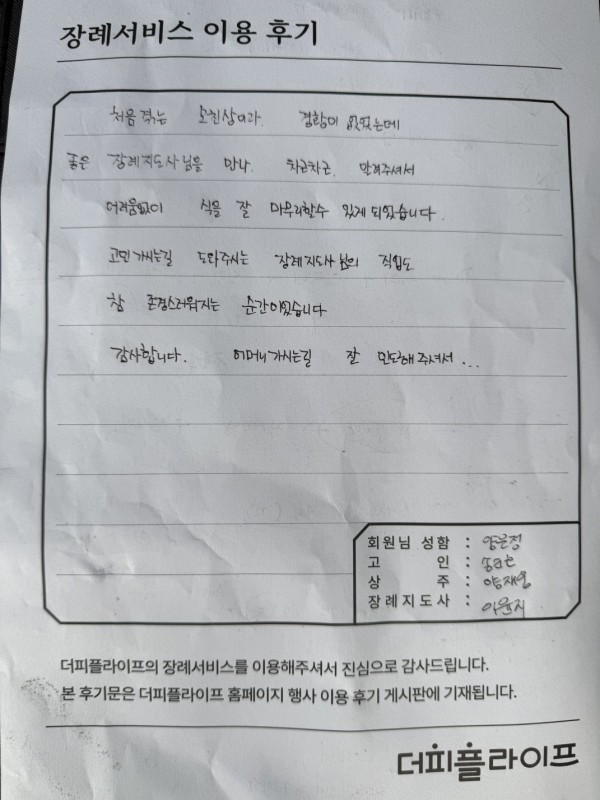 장례서비스 이용 후기
처음 겪는 경험이 없었는데
좋은 장례지도사님을 만나 차근차근 알려주셔서
어려움없이 식을 잘 마무리할수 있게 되었습니다.
고인 가시는길 도와주시는 장례지도사님의 직업도
참 존경스러워지는 순간이었습니다
감사합니다. 어머니가시는길 잘 인도해주셔서...
회원님 성함 : 양은정
고 인 :
상 주 : 양재영
장례지도사 : 이윤지
더피플라이프의 장례서비스를 이용해주셔서 진심으로 감사드립니다.
본 후기문은 더피플라이프 홈페이지 행사 이용 후기 게시판에 기재됩니다.
더피플라이프